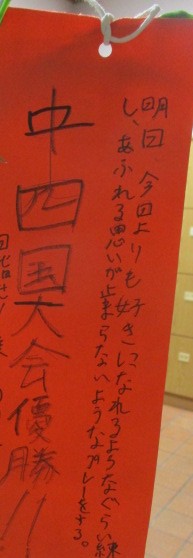 明日、今日よりも好きになれるようなぐらい練
し、あふれる思いが止まらないようなプレーをする。
中四国大会優勝!!